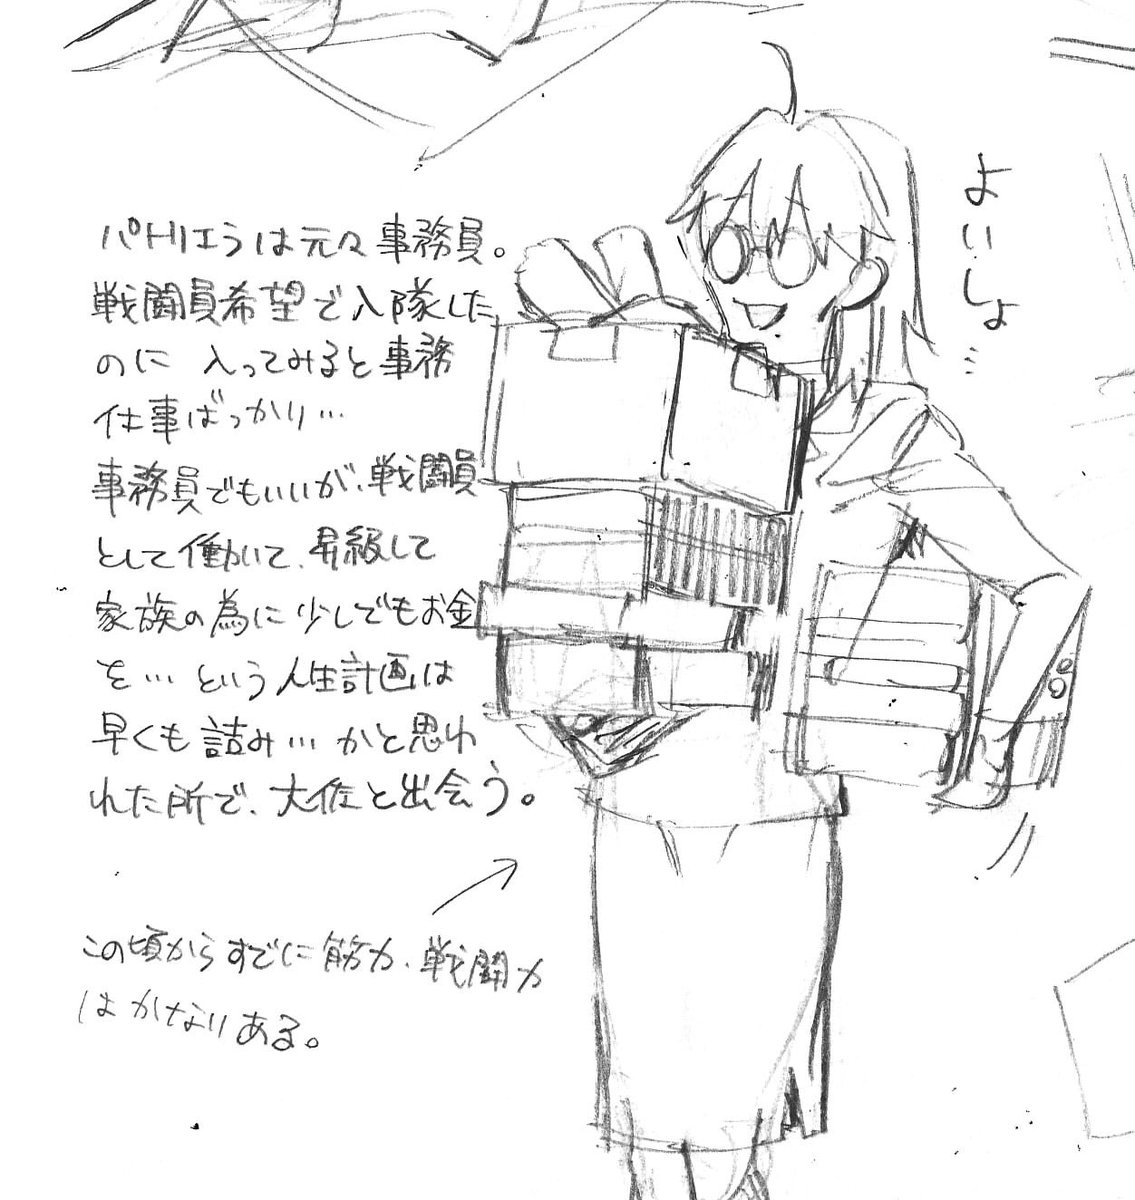 パトリエラは元々事務員。
戦闘員希望で入隊した
のに 入ってみると事務
仕事ばっかり…
事務員でもいいが、戦闘員
として働いて、昇級して
家族の為に少しでもお金
を…という人生計画は
早くも詰み…かと思わ
れた所で、大佐と出会う。
この頃からすでに筋力、戦闘力
はかなりある。
よいしょ…